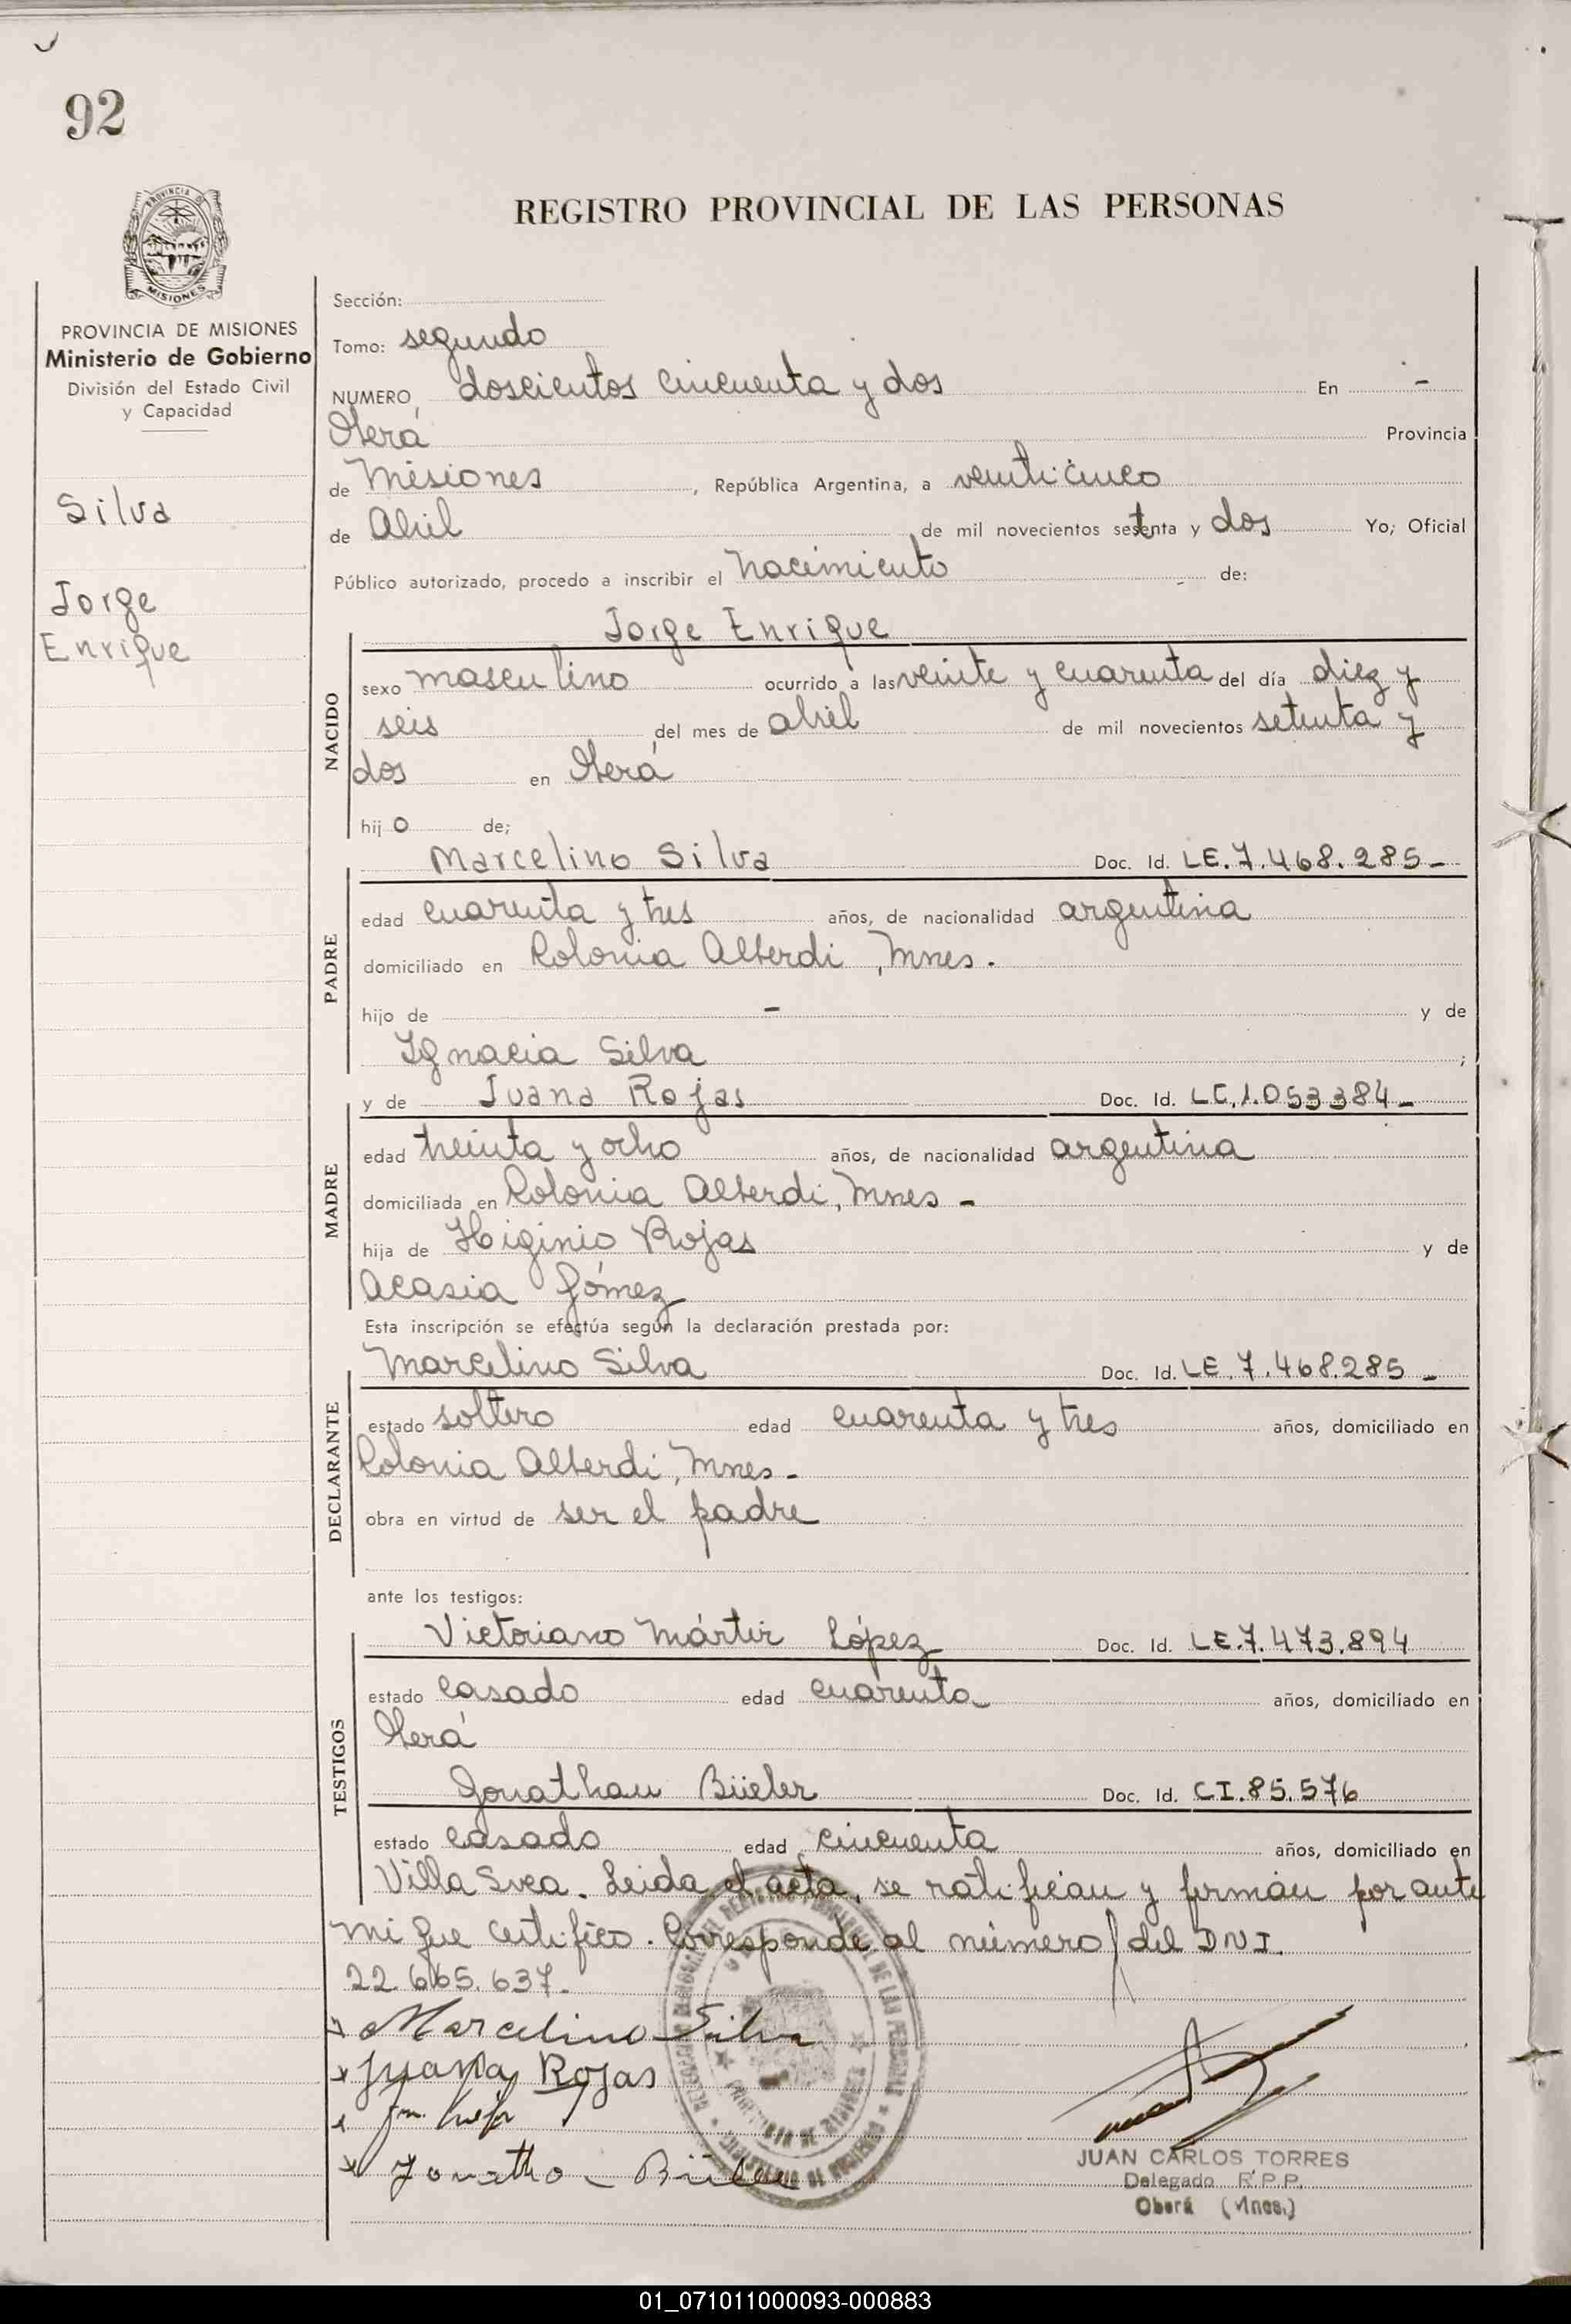 92
PROVINCIA DE
MISIONES
REGISTRO PROVINCIAL DE LAS PERSONAS
PROVINCIA DE MISIONES
Ministerio de Gobierno
División del Estado Civil
y Capacidad
Silva
Jorge
Enrique
Sección:
Tomo: segundo
NUMERO doscientos cincuenta y dos En -
Oberá Provincia
de Misiones, República Argentina, a veinticinco
de Abril de mil novecientos setenta y dos Yo; Oficial
Público autorizado, procedo a inscribir el Nacimiento de:
NACIDO
Jorge Enrique
sexo masculino ocurrido a las veinte y cuarenta del día diez y
seis del mes de abril de mil novecientos setenta y
dos en Oberá
hijo de;
PADRE
Marcelino Silva Doc. Id. LE.7.468.285-
edad cuarenta y tres años, de nacionalidad argentina
domiciliado en Colonia Alberdi, Mnes.
hijo de - y de
Ignacia Silva ;
MADRE
y de Juana Rojas Doc. Id. LC.1.053384-
edad treinta y ocho años, de nacionalidad argentina
domiciliada en Colonia Alberdi, Mnes-
hija de Higinio Rojas y de
Acasia Gómez
Esta inscripción se efectúa según la declaración prestada por:
DECLARANTE
Marcelino Silva Doc. Id. LE.7.468.285-
estado soltero edad cuarenta y tres años, domiciliado en
Colonia Alberdi, Mnes-
obra en virtud de ser el padre
ante los testigos:
TESTIGOS
Victoriano Mártir López Doc. Id. LE.7.473.894
estado casado edad cuarenta años, domiciliado en
Oberá
Jonathan Büeler Doc. Id. CI.85.576
estado casado edad cincuenta años, domiciliado en
Villa Svea. Leida el acta, se ratifican y firman por ante
mi que certifico. Corresponde al número del DNI.
22.665.637-
Marcelino Silva
Juana Rojas
JUAN CARLOS TORRES
Delegado R.P.P.
Oberá (Mnes.)
01_071011000093-000883